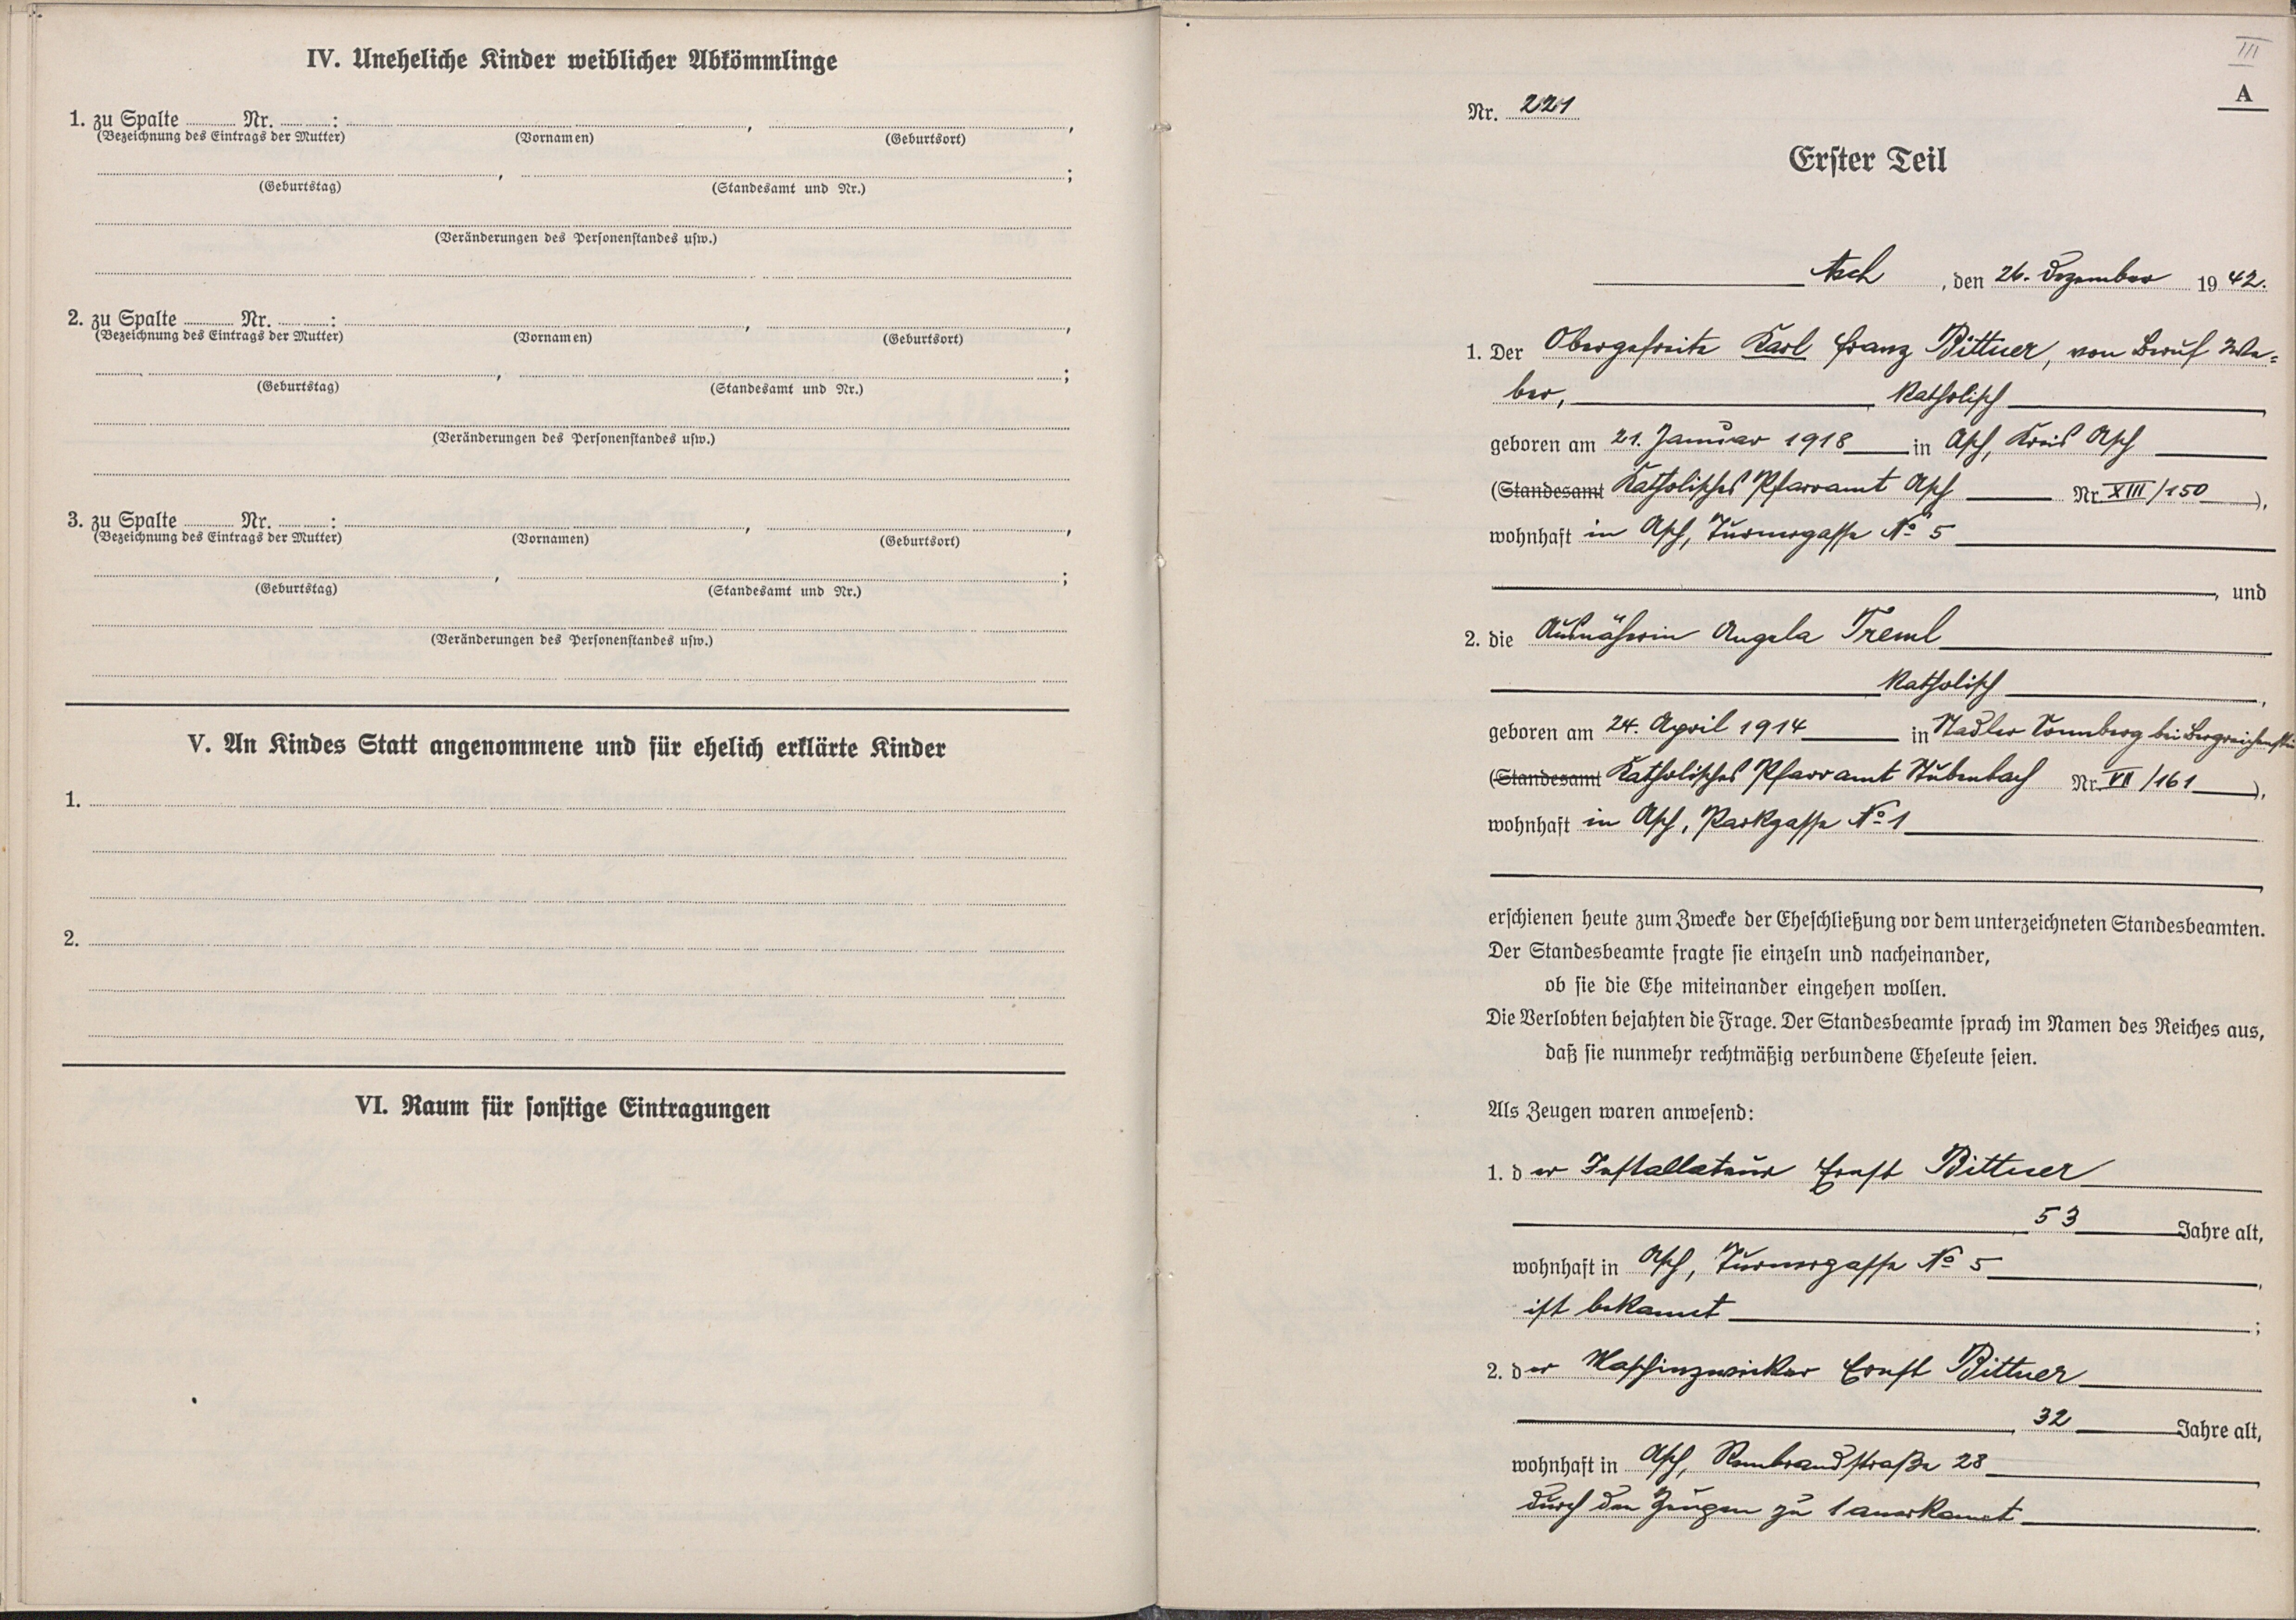 IV. Uneheliche Kinder weiblicher Abkömmlinge
1. zu Spalte Nr. : , ,
(Bezeichnung des Eintrags der Mutter) (Vornamen) (Geburtsort)
, ;
(Geburtstag) (Standesamt und Nr.)
(Veränderungen des Personenstandes usw.)
2. zu Spalte Nr. : , ,
(Bezeichnung des Eintrags der Mutter) (Vornamen) (Geburtsort)
, ;
(Geburtstag) (Standesamt und Nr.)
(Veränderungen des Personenstandes usw.)
3. zu Spalte Nr. : , ,
(Bezeichnung des Eintrags der Mutter) (Vornamen) (Geburtsort)
, ;
(Geburtstag) (Standesamt und Nr.)
(Veränderungen des Personenstandes usw.)
V. An Kindes Statt angenommene und für ehelich erklärte Kinder
1.
2.
VI. Raum für sonstige Eintragungen
III
A
Nr. 221
Erster Teil
Asch, den 26. Dezember 1942.
1. Der Obergefreite Karl Franz Bittner, von Beruf We-
ber, katholisch,
geboren am 21. Januar 1918 in Asch, Kreis Asch
(Standesamt Katholisches Pfarramt Asch Nr. XIII/150),
wohnhaft in Asch, Turnergasse No 5
, und
2. die Ausnäherin Angela Treml
katholisch,
geboren am 24. April 1914 in Stadler Sonnberg bei Bergreichenstein
(Standesamt Katholisches Pfarramt Stubenbach Nr. VII/161),
wohnhaft in Asch, Parkgasse No 1
,
erschienen heute zum Zwecke der Eheschließung vor dem unterzeichneten Standesbeamten.
Der Standesbeamte fragte sie einzeln und nacheinander,
ob sie die Ehe miteinander eingehen wollen.
Die Verlobten bejahten die Frage. Der Standesbeamte sprach im Namen des Reiches aus,
daß sie nunmehr rechtmäßig verbundene Eheleute seien.
Als Zeugen waren anwesend:
1. der Installateur Ernst Bittner
, 53 Jahre alt,
wohnhaft in Asch, Turnergasse No 5,
ist bekannt;
2. der Maschinzwicker Ernst Bittner
, 32 Jahre alt,
wohnhaft in Asch, Rembrandstraße 28,
durch den Zeugen zu 1 anerkannt.